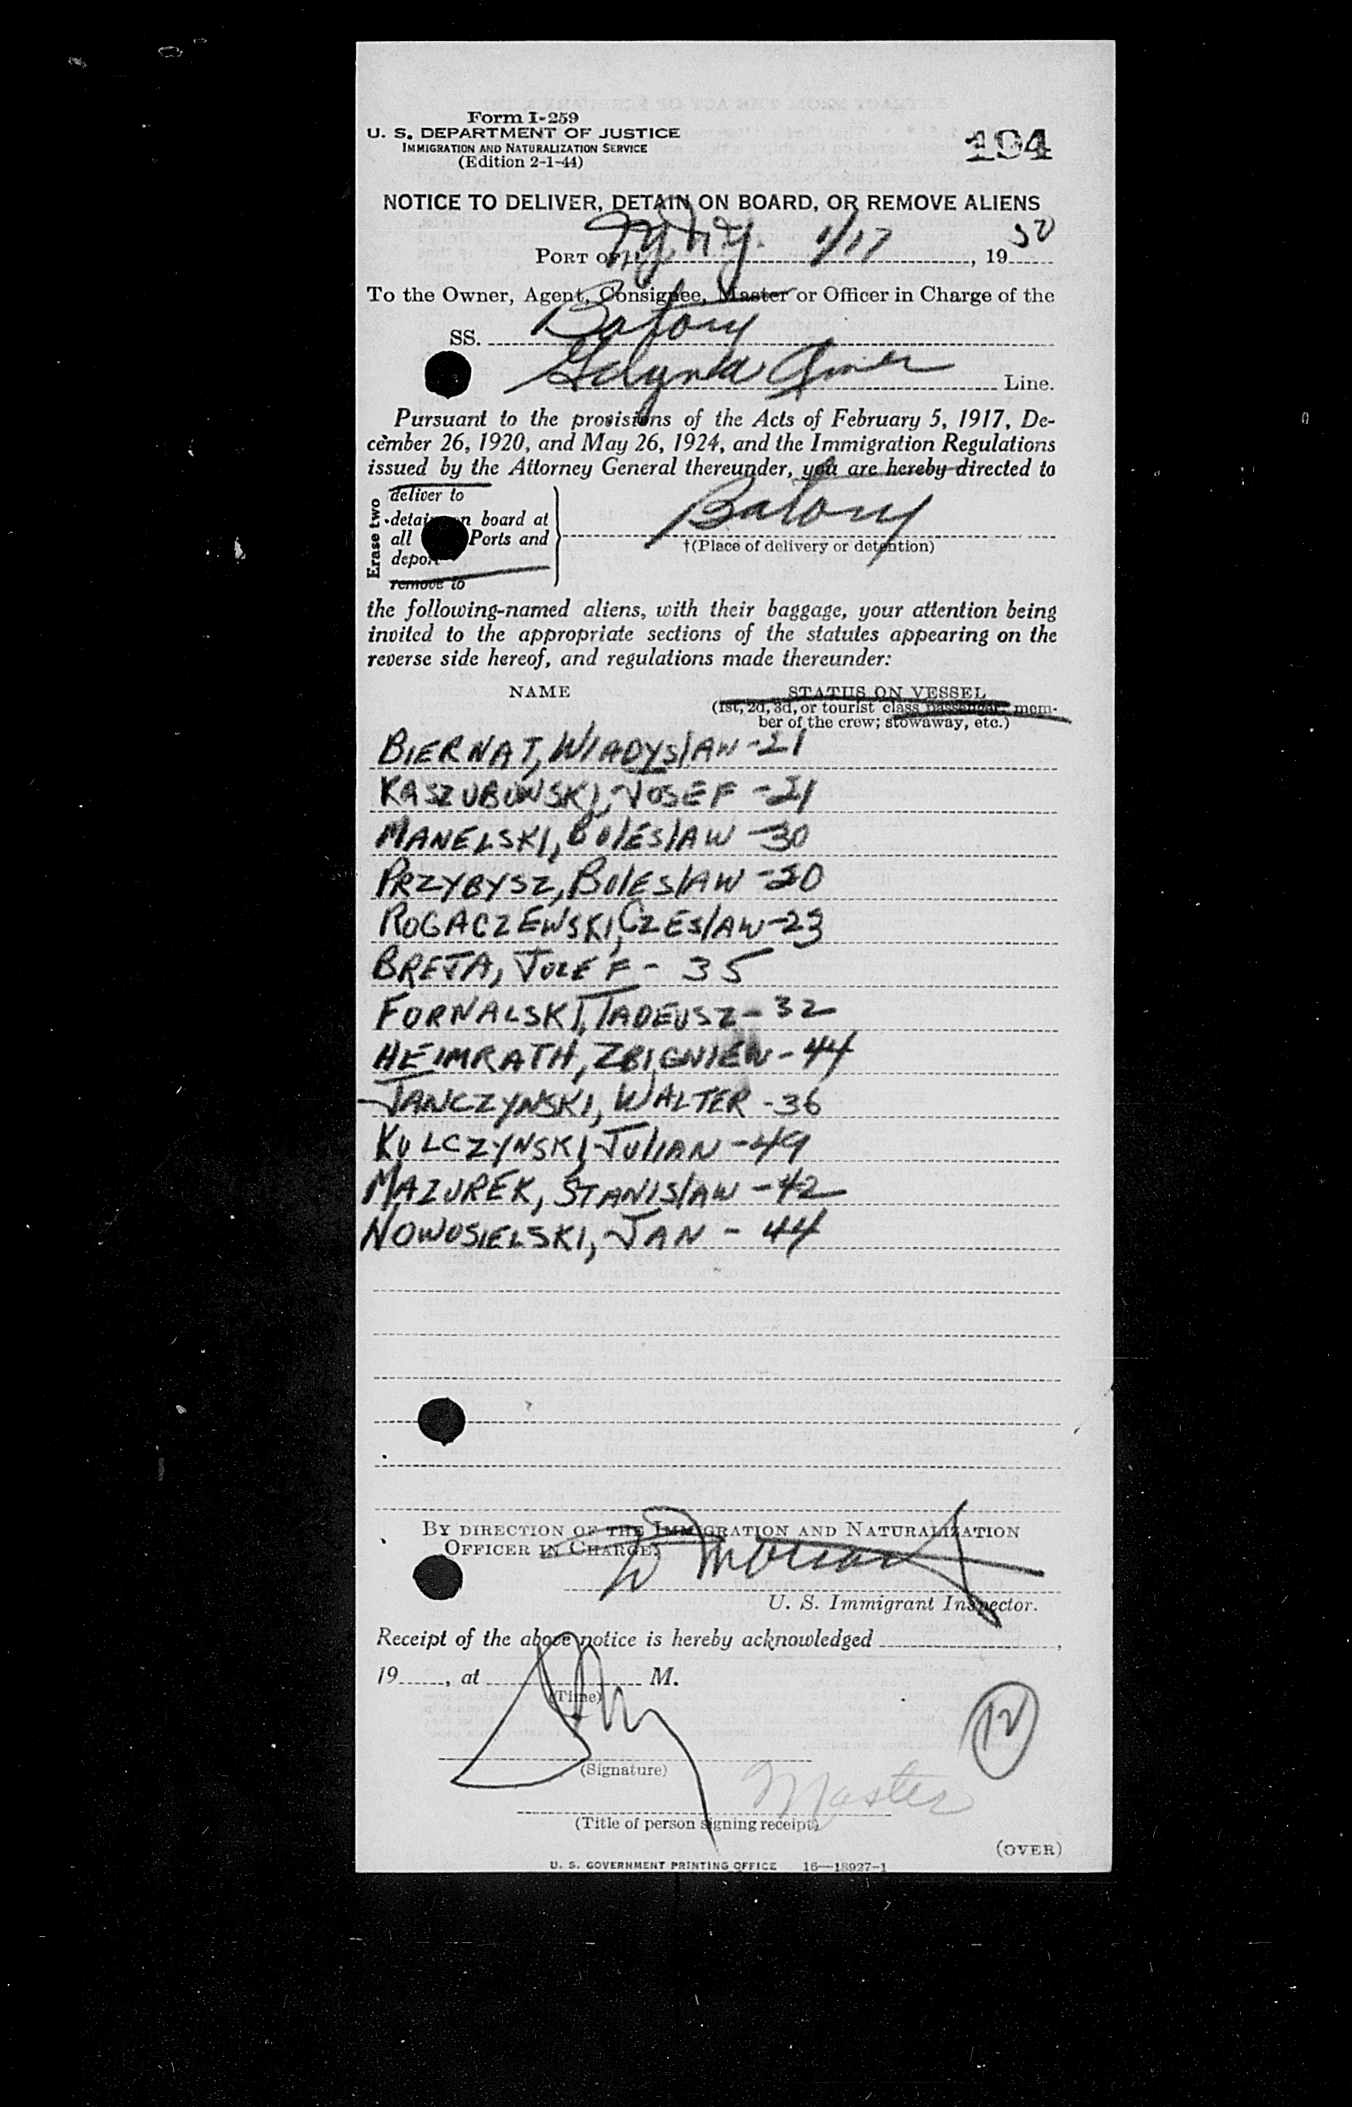 Form I-259
U. S. DEPARTMENT OF JUSTICE
IMMIGRATION AND NATURALIZATION SERVICE
(Edition 2-1-44)
194
NOTICE TO DELIVER, DETAIN ON BOARD, OR REMOVE ALIENS
PORT OF N.Y. N.Y. 1/17, 1950
To the Owner, Agent, Consignee, Master or Officer in Charge of the
SS. Batory
Gdynia Amer Line.
Pursuant to the provisions of the Acts of February 5, 1917, De-
cember 26, 1920, and May 26, 1924, and the Immigration Regulations
issued by the Attorney General thereunder, you are hereby directed to
Erase two
deliver to
detain on board at
all Ports and
deport
remove to
Batory
†(Place of delivery or detention)
the following-named aliens, with their baggage, your attention being
invited to the appropriate sections of the statutes appearing on the
reverse side hereof, and regulations made thereunder:
NAME STATUS ON VESSEL
(1st, 2d, 3d, or tourist class passenger; mem-
ber of the crew; stowaway, etc.)
BIERNAT, WlADYSlAW - 21
KASZUBOWSKI, JOSEF - 21
MANELSKI, BOlESlAW - 30
PRZYBYSZ, BOlESlAW - 20
ROGACZEWSKI, CZESlAW - 23
BREJA, JOZEF - 35
FORNALSKI, TADEUSZ - 32
HEIMRATH, ZBIGNIEW - 44
JANCZYNSKI, WALTER - 36
KULCZYNSKI, JULIAN - 49
MAZUREK, STANISlAW - 42
NOWOSIELSKI, JAN - 44
BY DIRECTION OF THE IMMIGRATION AND NATURALIZATION
OFFICER IN CHARGE:
U. S. Immigrant Inspector.
Receipt of the above notice is hereby acknowledged ,
19 , at M.
(Time)
12
(Signature)
Master
(Title of person signing receipt)
(OVER)
U. S. GOVERNMENT PRINTING OFFICE 16—18927-1